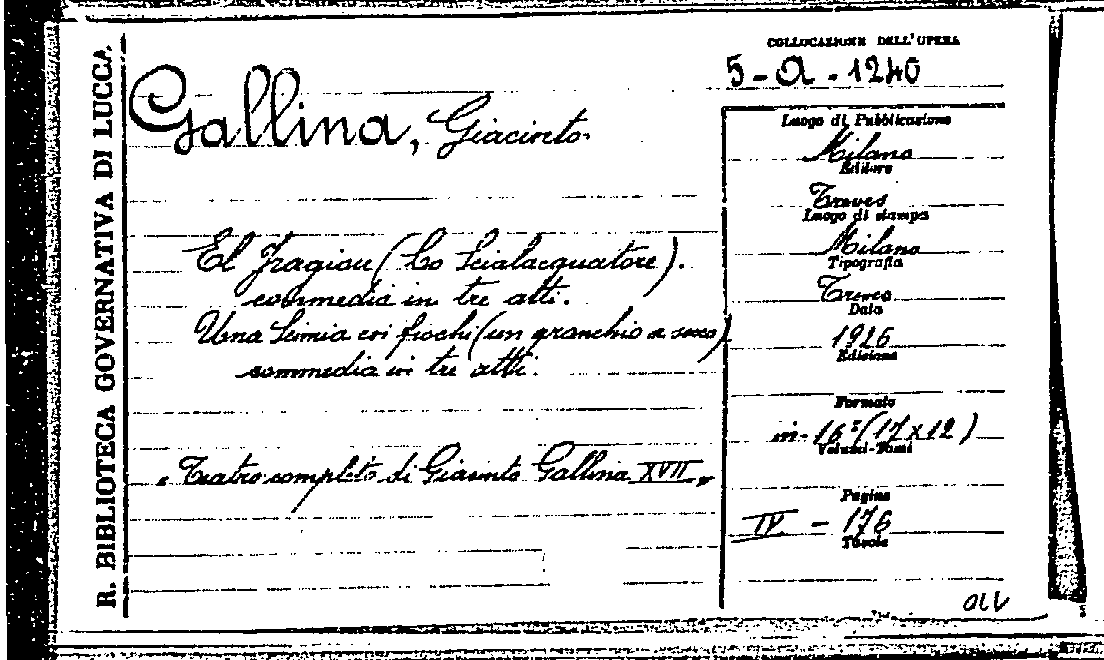 R. BIBLIOTECA GOVERNATIVA DI LUCCA
COLLOCAZIONE DELL'OPERA
5-a-1240
Gallina, Giacinto.
El fragiou (Lo Scialacquatore).
commedia in tre atti.
Una Simia coi fiochi (un granchio a secco)
commedia in tre atti.
"Teatro completo di Giacinto Gallina XVII."
Luogo di Pubblicazione
Milano
Editore
Treves
Luogo di stampa
Milano
Tipografia
Treves
Data
1926
Edizione
Formato
in-16° (17x12)
Volumi-Tomi
Pagine
IV - 176
Tavole